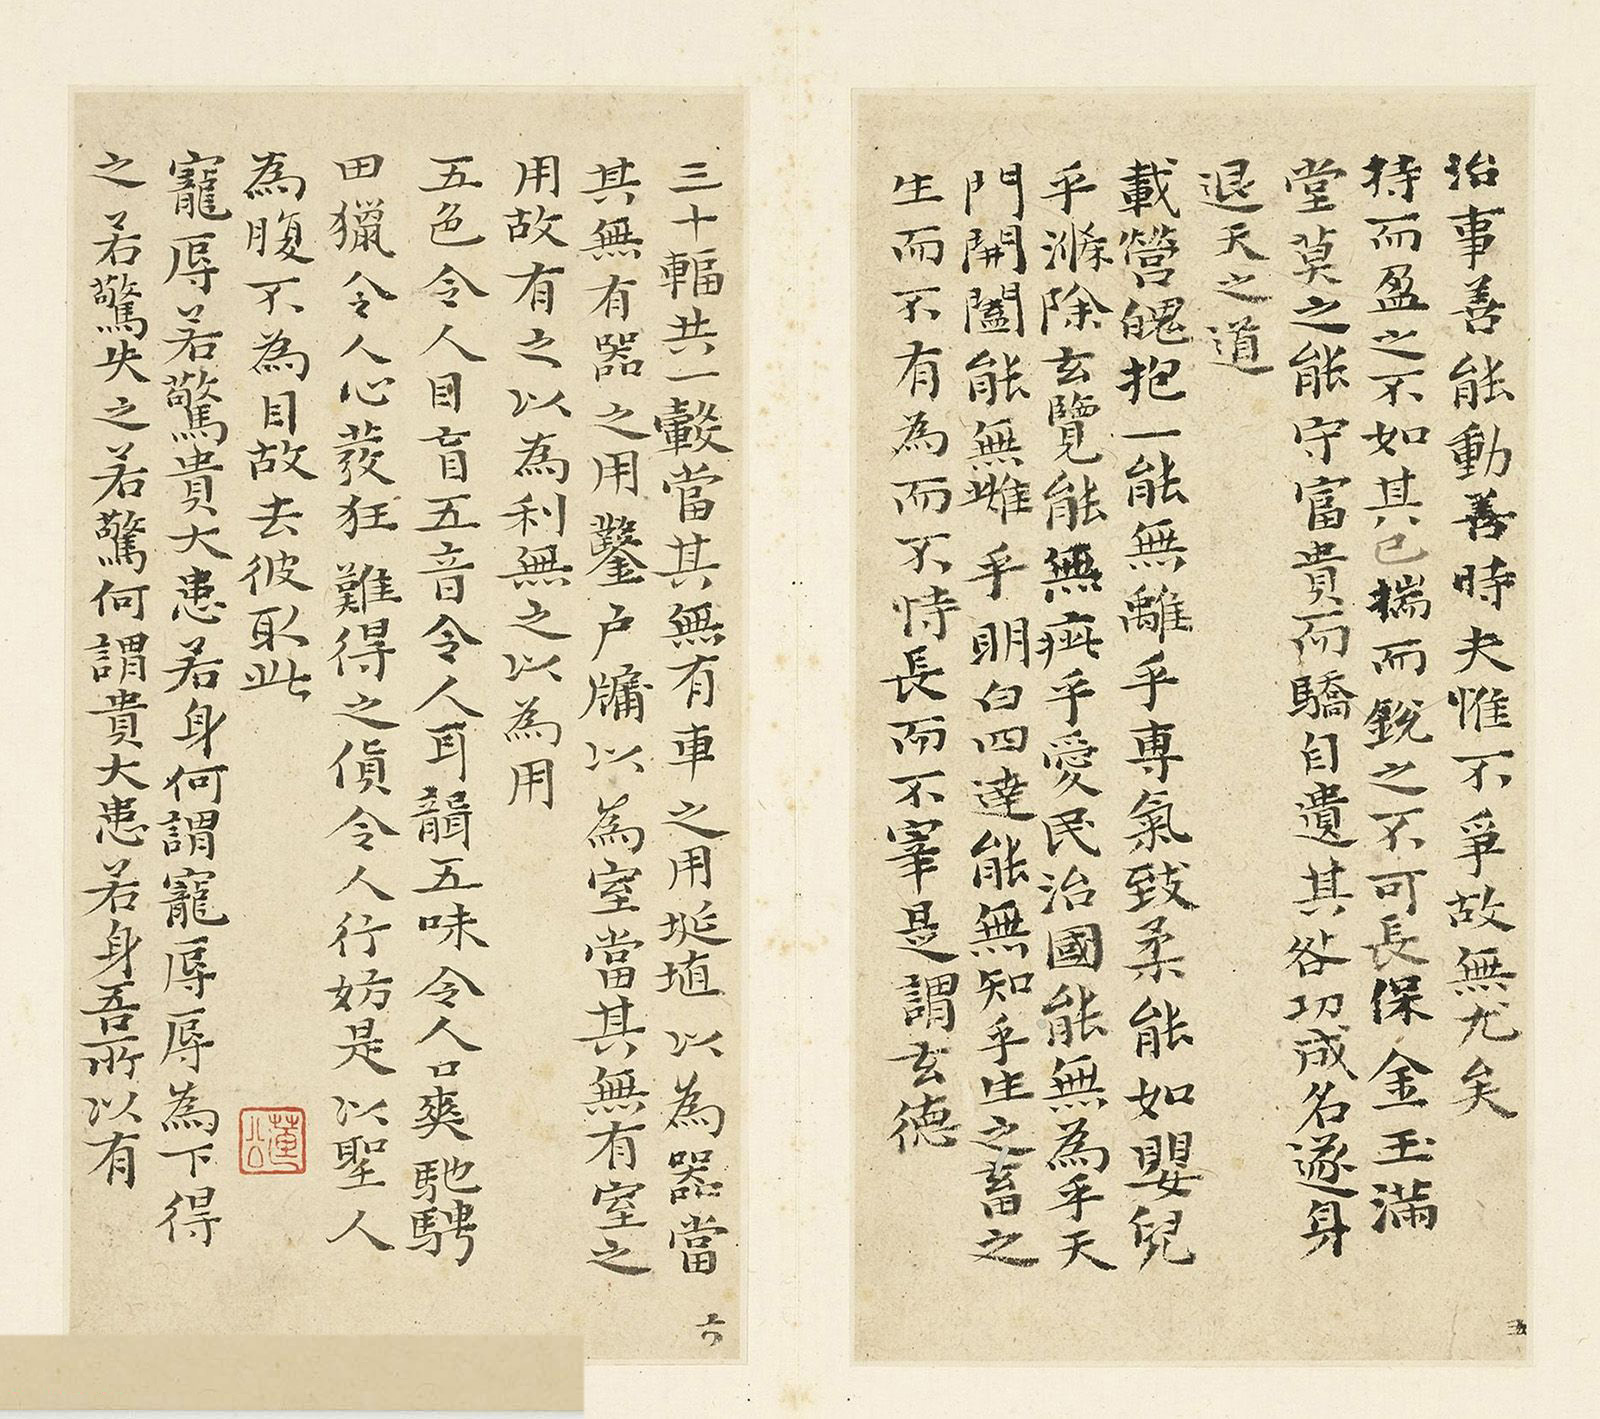 治事善能動善時夫惟不爭故無尤矣
持而盈之不如其已揣而銳之不可長保金玉滿
堂莫之能守富貴而驕自遺其咎功成名遂身
退天之道
載營魄抱一能無離乎專氣致柔能如嬰兒
乎滌除玄覽能無疵乎愛民治國能無為乎天
門開闔能無雌乎明白四達能無知乎生之畜之
生而不有為而不恃長而不宰是謂玄德
五
三十輻共一轂當其無有車之用埏埴以為器當
其無有器之用鑿户牖以為室當其無有室之
用故有之以為利無之以為用
五色令人目盲五音令人耳聾五味令人口爽馳騁
田獵令人心發狂難得之貨令人行妨是以聖人
為腹不為目故去彼取此
寵辱若驚貴大患若身何謂寵辱辱為下得
之若驚失之若驚何謂貴大患若身吾所以有
六